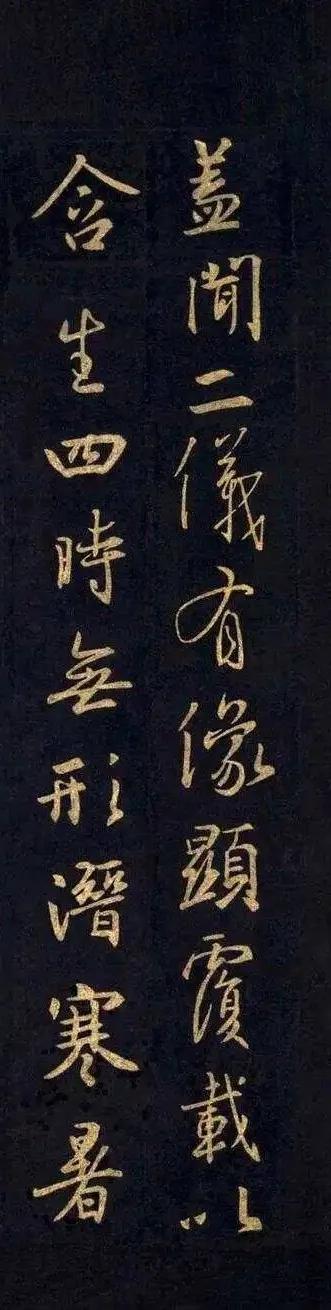 蓋聞二儀有像顯覆載以
含生四時無形潛寒暑